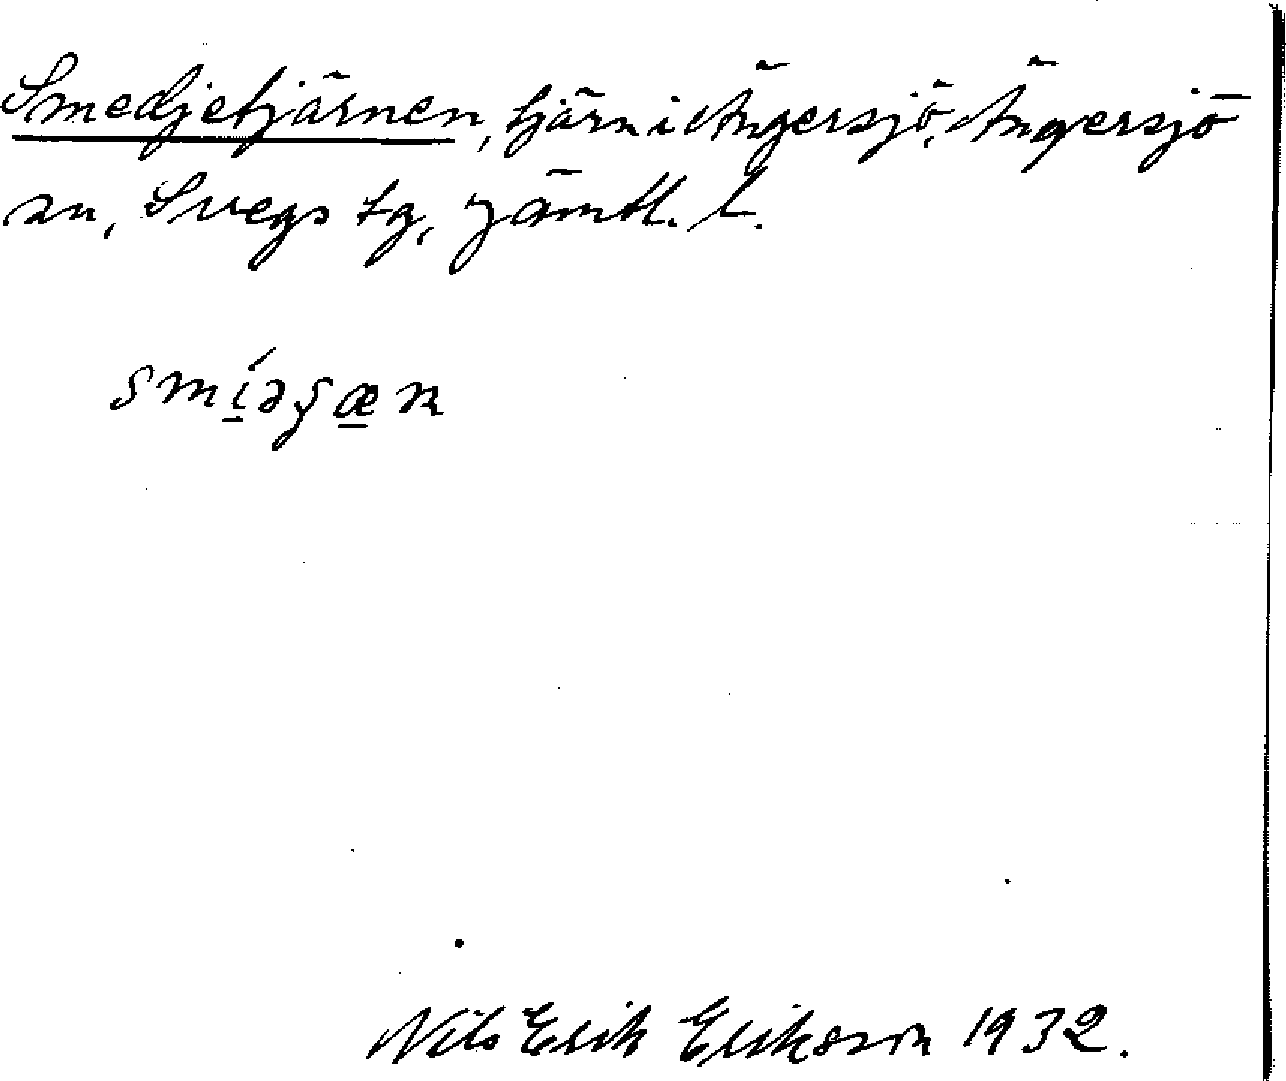 Smedjetjärnen, tjärn i Ängersjö, Ängersjö
sn, Svegs tg, Jämtl. l.
smíəʂæɴ
Nils Erik Eriksson 1932.